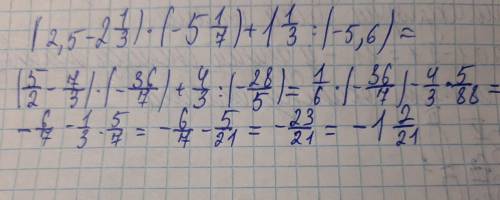 (2,5-2 1/3)·(-5 1/7)+1 1/3:(-5,6)=
(5/2-7/3)·(-36/7)+4/3:(-28/5)=1/6·(-36/7)-4/3·5/88=
-6/7-1/3·5/7=-6/7-5/21=-23/21=-1 2/21